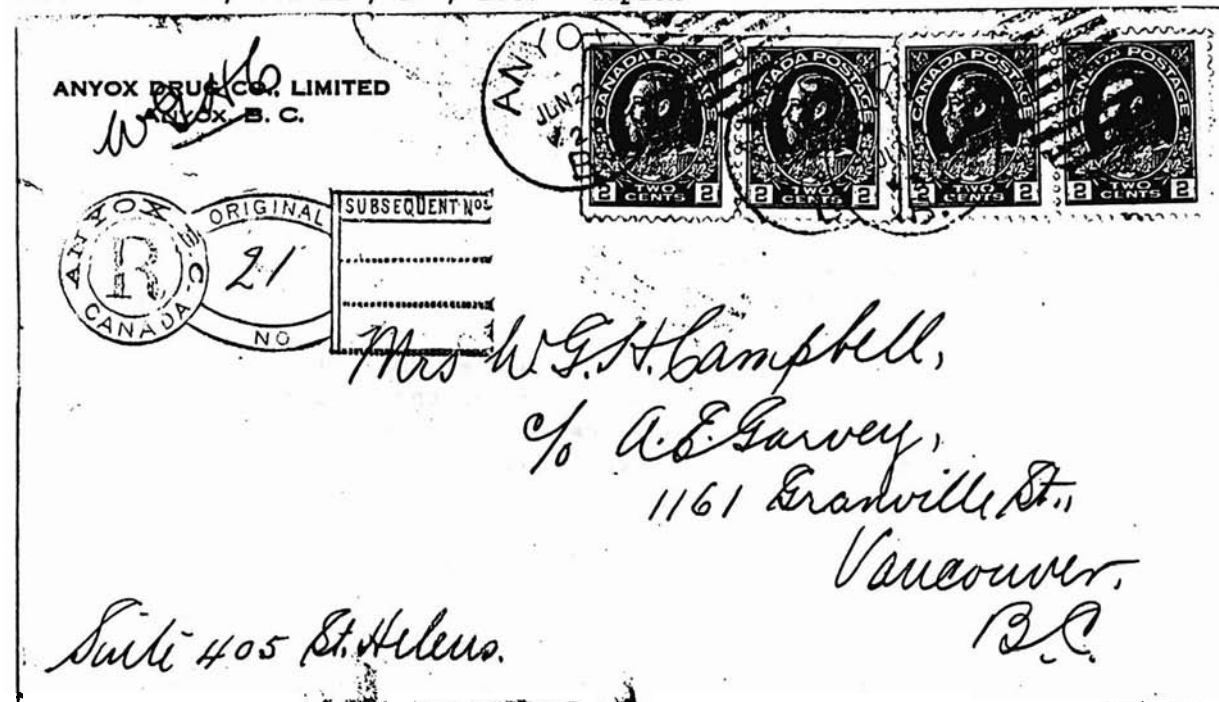 ANYOX DRUG CO., LIMITED
ANYOX, B. C.
ANYOX
JUN 2
CANADA POSTAGE
2 TWO CENTS 2
CANADA POSTAGE
2 TWO CENTS 2
CANADA POSTAGE
2 TWO CENTS 2
CANADA POSTAGE
2 TWO CENTS 2
ANYOX B.C.
R
CANADA
ORIGINAL
21
NO
SUBSEQUENT Nos
Mrs W. G. H. Campbell,
c/o A. E. Garvey,
1161 Granville St.,
Vancouver,
B.C.
Suite 405 St. Helens.